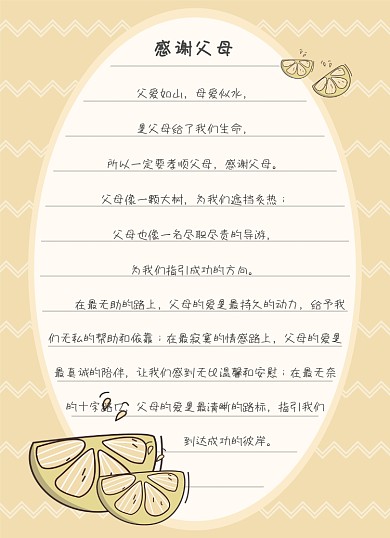 感谢父母
父爱如山，母爱似水，
是父母给了我们生命，
所以一定要孝顺父母，感谢父母。
父母像一颗大树，为我们遮挡炙热；
父母也像一名尽职尽责的导游，
为我们指引成功的方向。
在最无助的路上，父母的爱是最持久的动力，给予我
们无私的帮助和依靠；在最寂寞的情感路上，父母的爱是
最真诚的陪伴，让我们感到无仅温馨和安慰；在最无奈
的十字路口，父母的爱是最清晰的路标，指引我们
到达成功的彼岸。